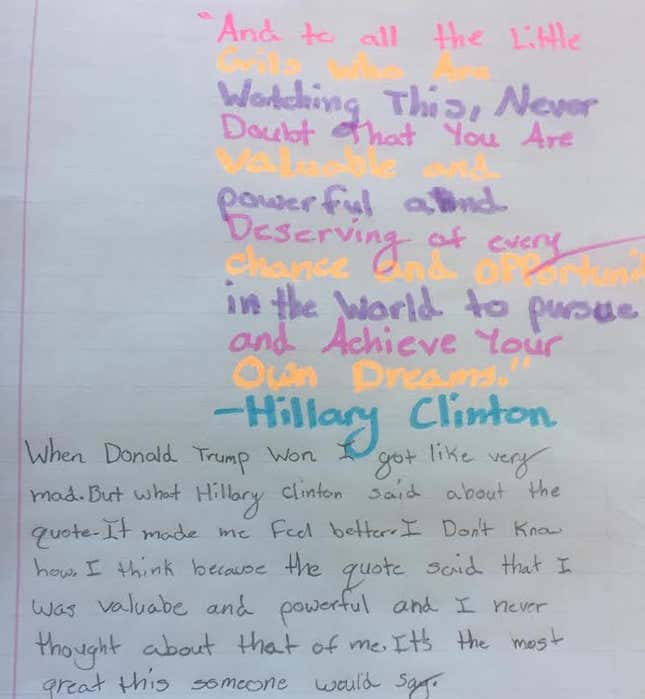 "And to all the Little
Grils who Are
Watching This, Never
Doubt That You Are
Valuable and
powerful and
Deserving of every
chance and opportunit
in the World to pursue
and Achieve Your
Own Dreams."
-Hillary Clinton
When Donald Trump Won I got like very
mad. But what Hillary Clinton said about the
quote-It made me Feel better. I Don't Know
how. I think because the quote said that I
was valuabe and powerful and I never
thought about that of me. It's the most
great this someone would say.